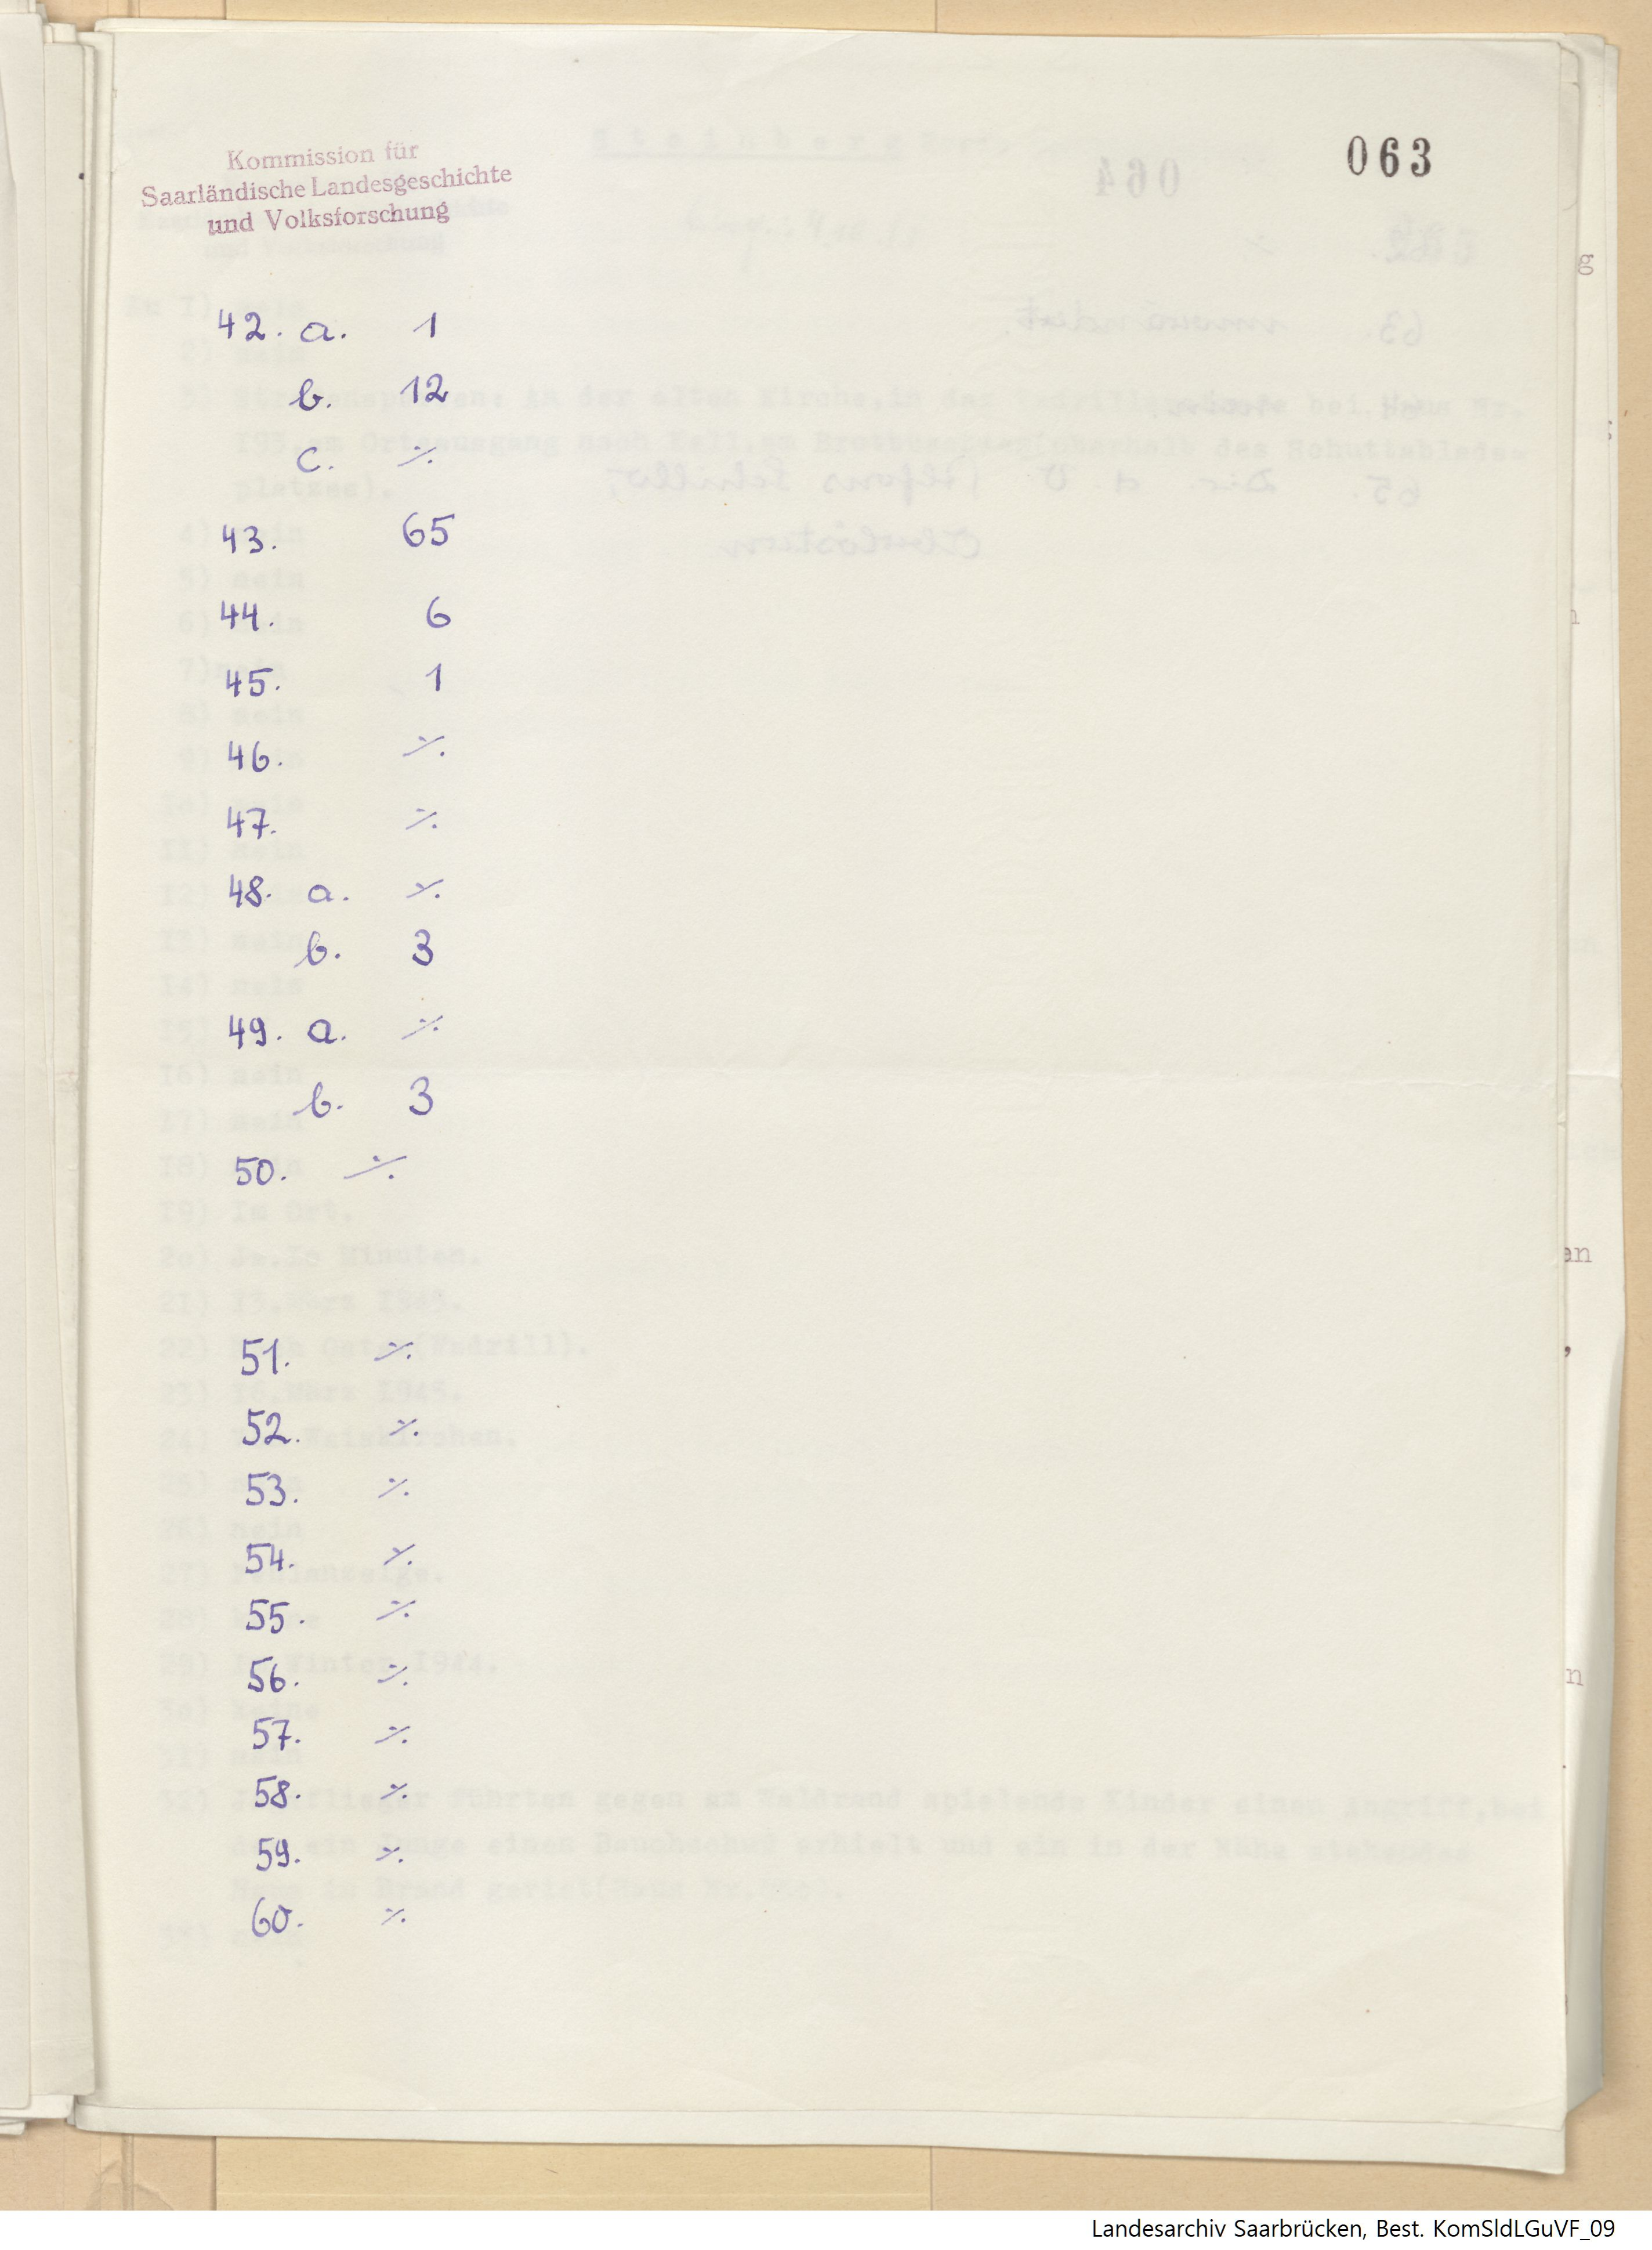 Kommission für
Saarländische Landesgeschichte
und Volksforschung
063
42. a. 1
b. 12
c. ⁒
43. 65
44. 6
45. 1
46. ⁒
47. ⁒
48. a. ⁒
b. 3
49. a. ⁒
b. 3
50. ⁒
51. ⁒
52. ⁒
53. ⁒
54. ⁒
55. ⁒
56. ⁒
57. ⁒
58. ⁒
59. ⁒
60. ⁒
Landesarchiv Saarbrücken, Best. KomSldLGuVF_09